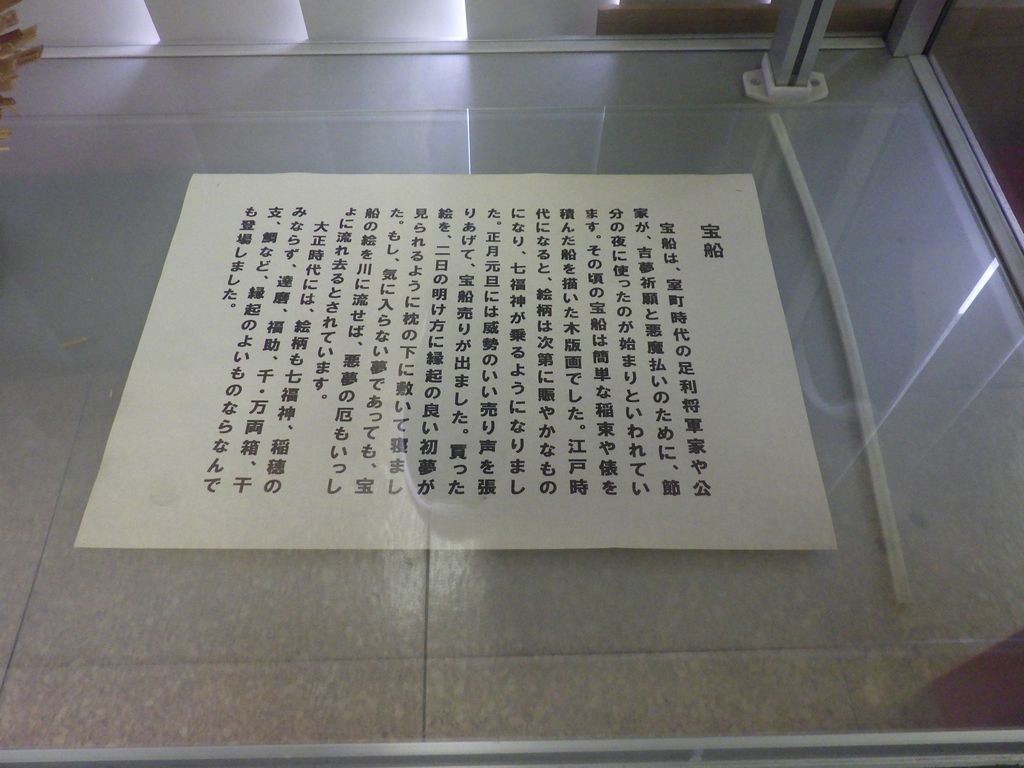 宝船
宝船は、室町時代の足利将軍家や公
家が、吉夢祈願と悪魔払いのために、節
分の夜に使ったのが始まりといわれてい
ます。その頃の宝船は簡単な稲束や俵を
積んだ船を描いた木版画でした。江戸時
代になると、絵柄は次第に賑やかなもの
になり、七福神が乗るようになりまし
た。正月元旦には威勢のいい売り声を張
りあげて、宝船売りが出ました。買った
絵を、二日の明け方に縁起の良い初夢が
見られるように枕の下に敷いて寝まし
た。もし、気に入らない夢であっても、宝
船の絵を川に流せば、悪夢の厄もいっし
ょに流れ去るとされています。
大正時代には、絵柄も七福神、稲穂の
みならず、達磨、福助、千・万両箱、干
支、鯛など、縁起のよいものならなんで
も登場しました。